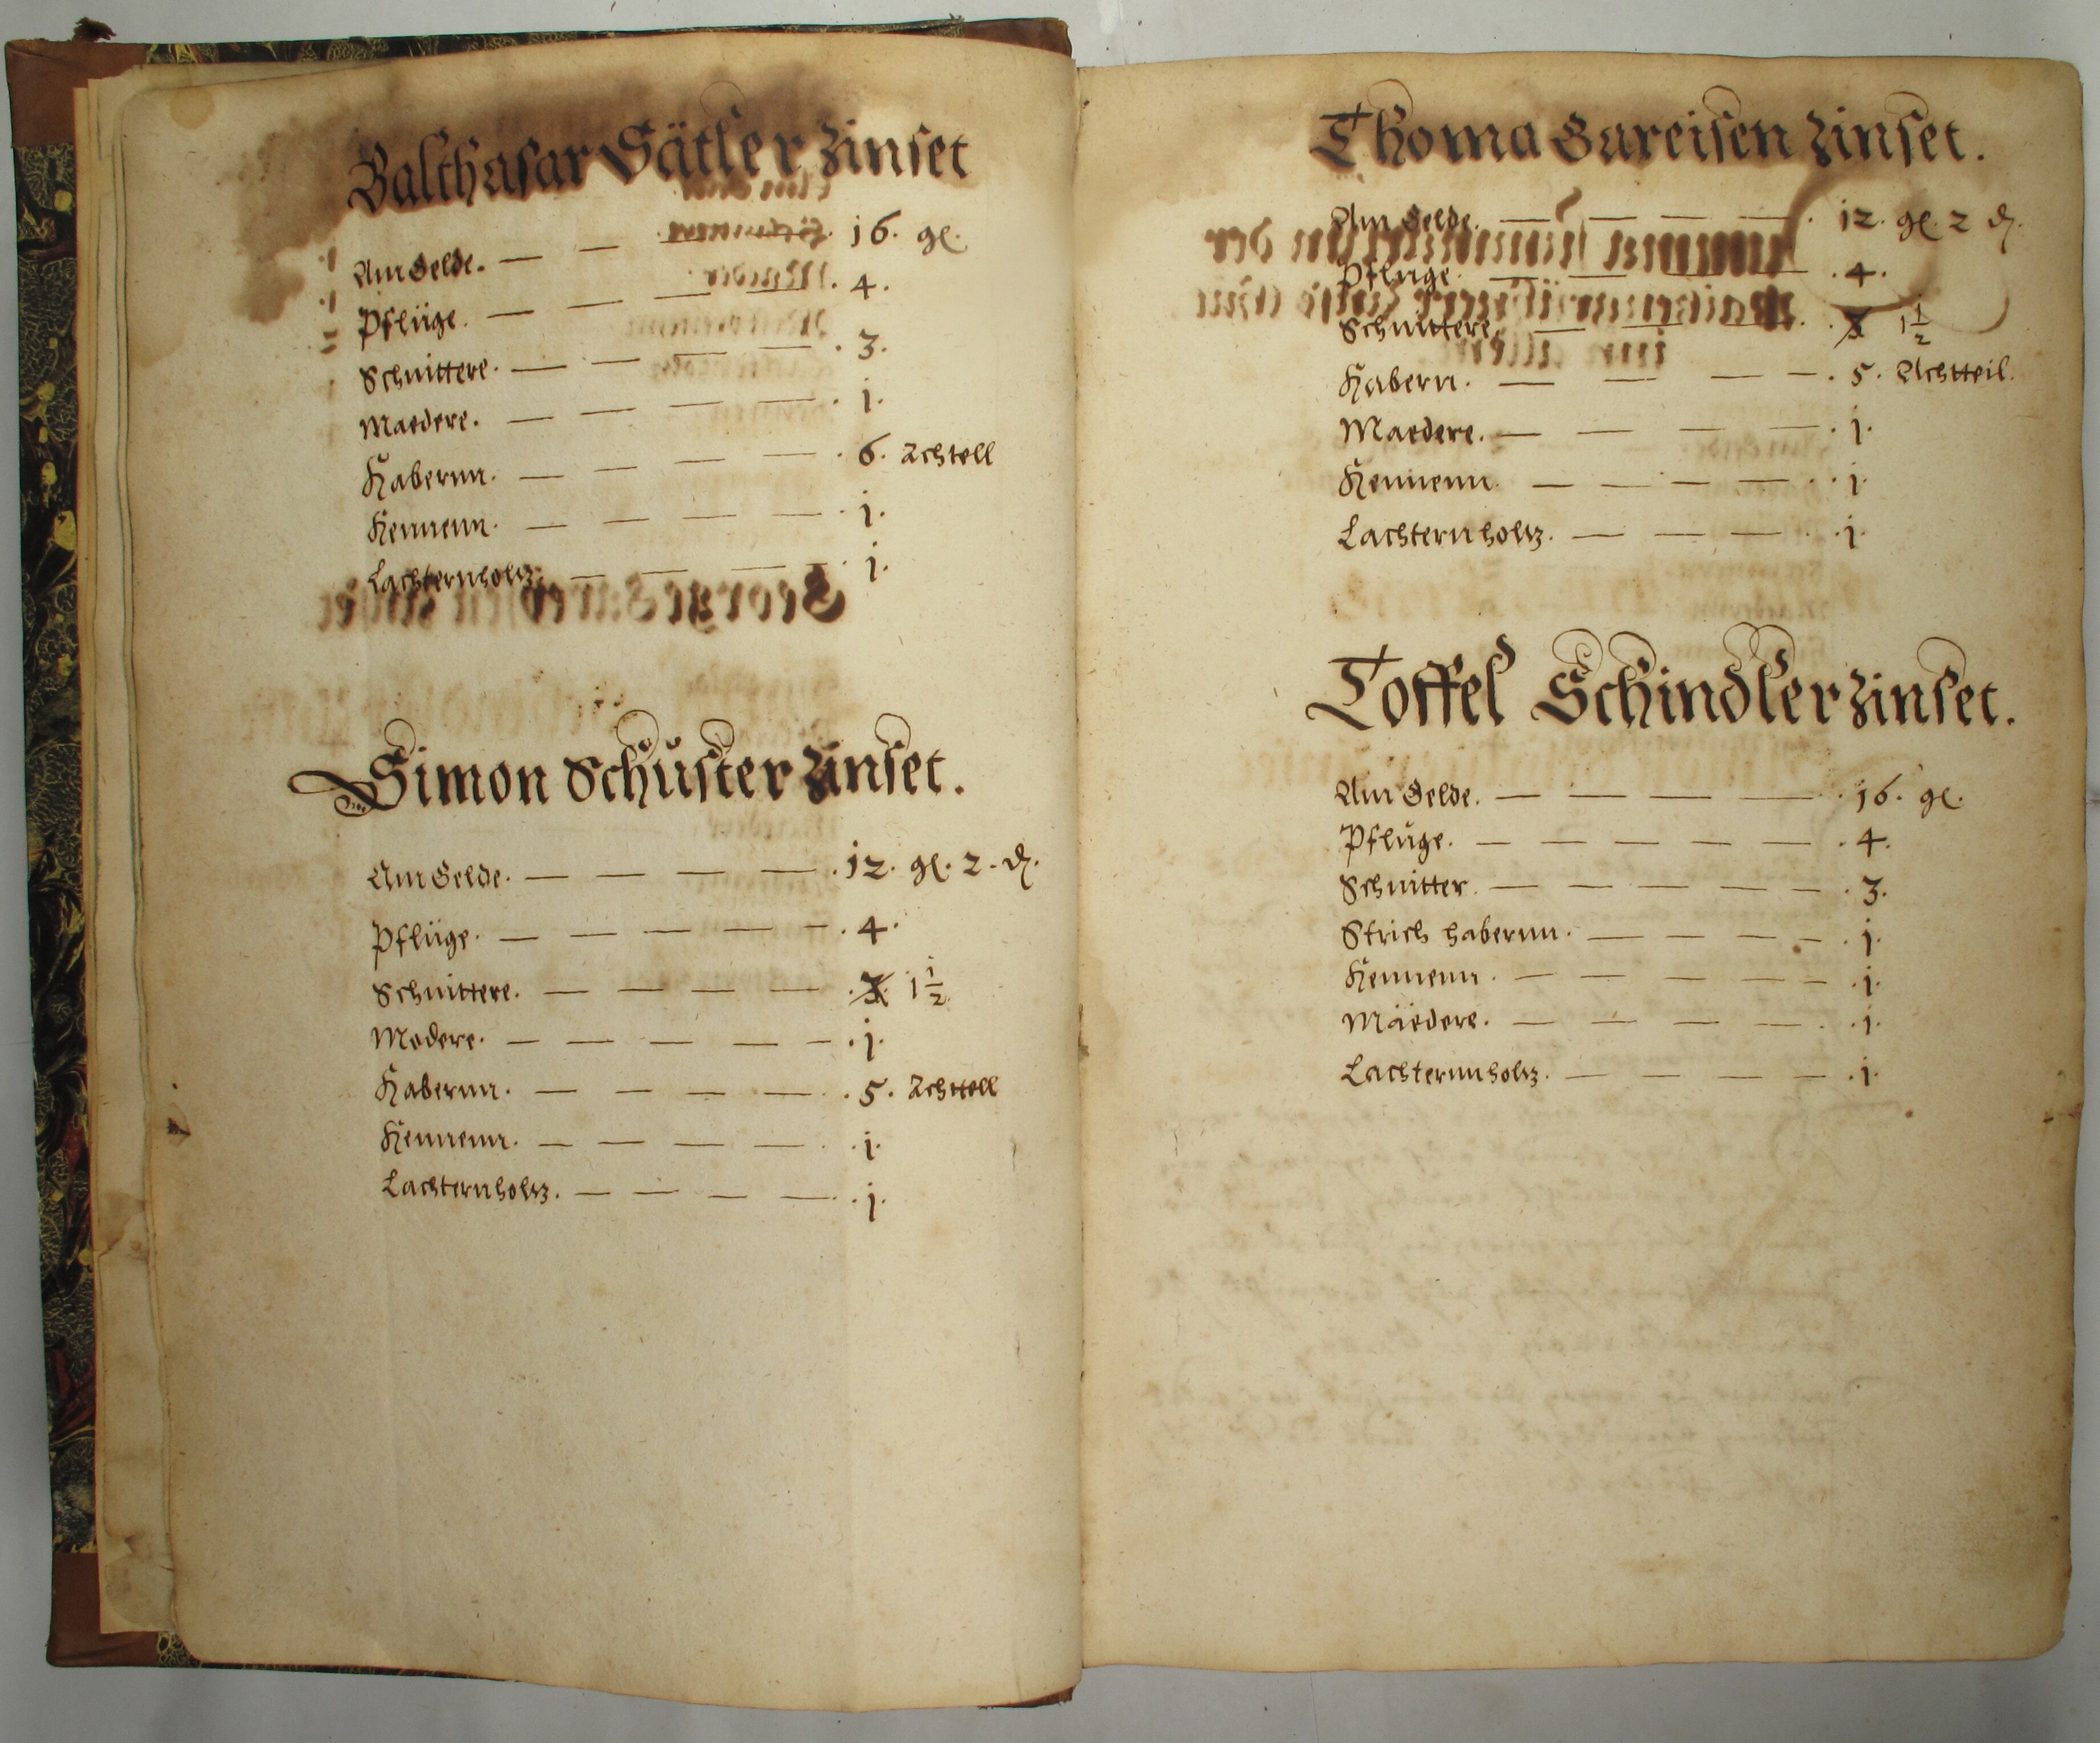 Balthasar Sätler zinset
Am Gelde. — — — — . 16. gl.
Pflüge. — — — — . 4.
Schnittere. — — — — . 3.
Maedere. — — — — . 1.
Habernn. — — — — . 6. Achtell
Hennenn. — — — — . 1.
Lachternholtz. — — — — . 1.
Simon Schuster zinset.
Am Gelde. — — — — . 12. gl. 2. d.
Pflüge. — — — — — . 4.
Schnittere. — — — — . 3. 1 1/2
Modere. — — — — — . 1.
Habernn. — — — — . 5. Achttell
Hennenn. — — — — . 1.
Lachternholtz. — — — — . 1.
Thoma Gareisen zinset.
Am Gelde. — — — — . 12. gl. 2 d.
Pflüge. — — — — . 4.
Schnittere. — — — . 3 1 1/2
Habern. — — — — . 5. Achtteil.
Maedere. — — — — . 1.
Hennenn. — — — — . . 1.
Lachternholtz. — — — . . 1.
Toffel Schindler zinset.
Am Gelde. — — — — . 16. gl.
Pfluge. — — — — — . 4.
Schnitter. — — — — — . 3.
Strich habernn. — — — — . 1.
Hennenn. — — — — — . 1.
Mäedere. — — — — . . 1.
Lachternnholtz. — — — — . 1.